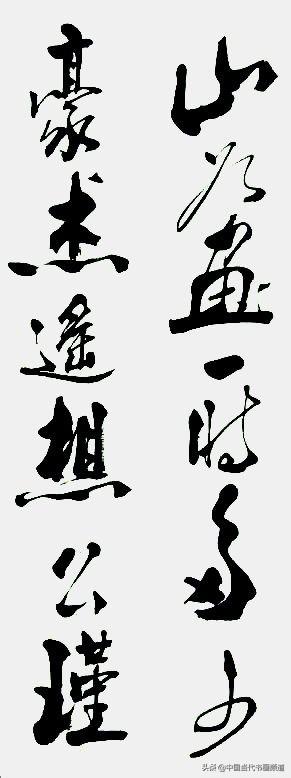 山如畫一時多少
豪杰遙想公瑾
头条 @中国当代书画频道